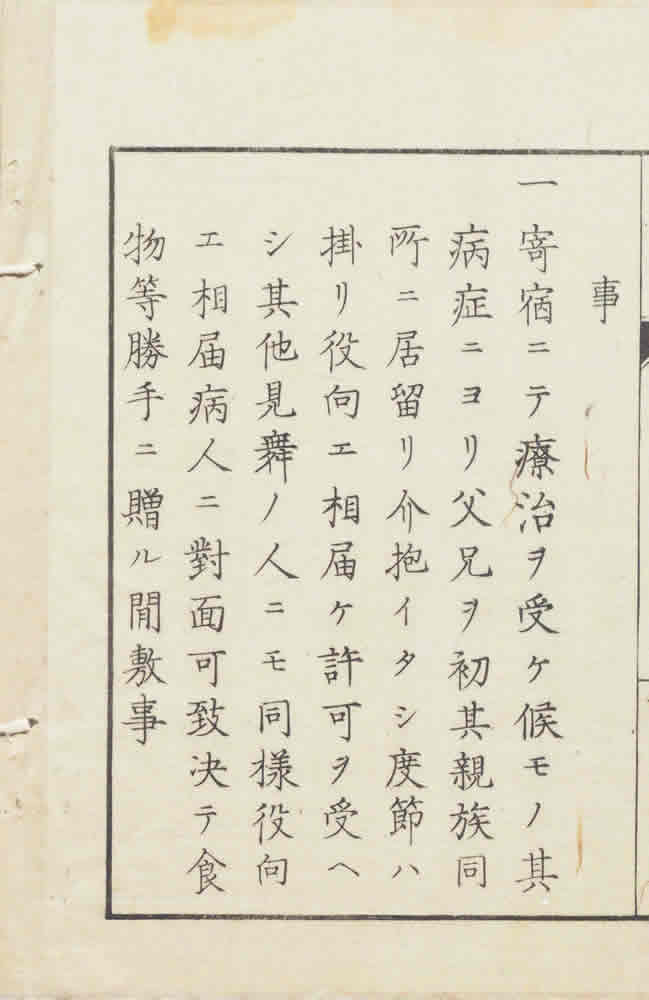 事
一寄宿ニテ療治ヲ受ケ候モノ其
病症ニヨリ父兄ヲ初其親族同
所ニ居留リ介抱イタシ度節ハ
掛リ役向エ相届ケ許可ヲ受ヘ
シ其他見舞ノ人ニモ同様役向
エ相届病人ニ對面可致决テ食
物等勝手ニ贈ル間敷事